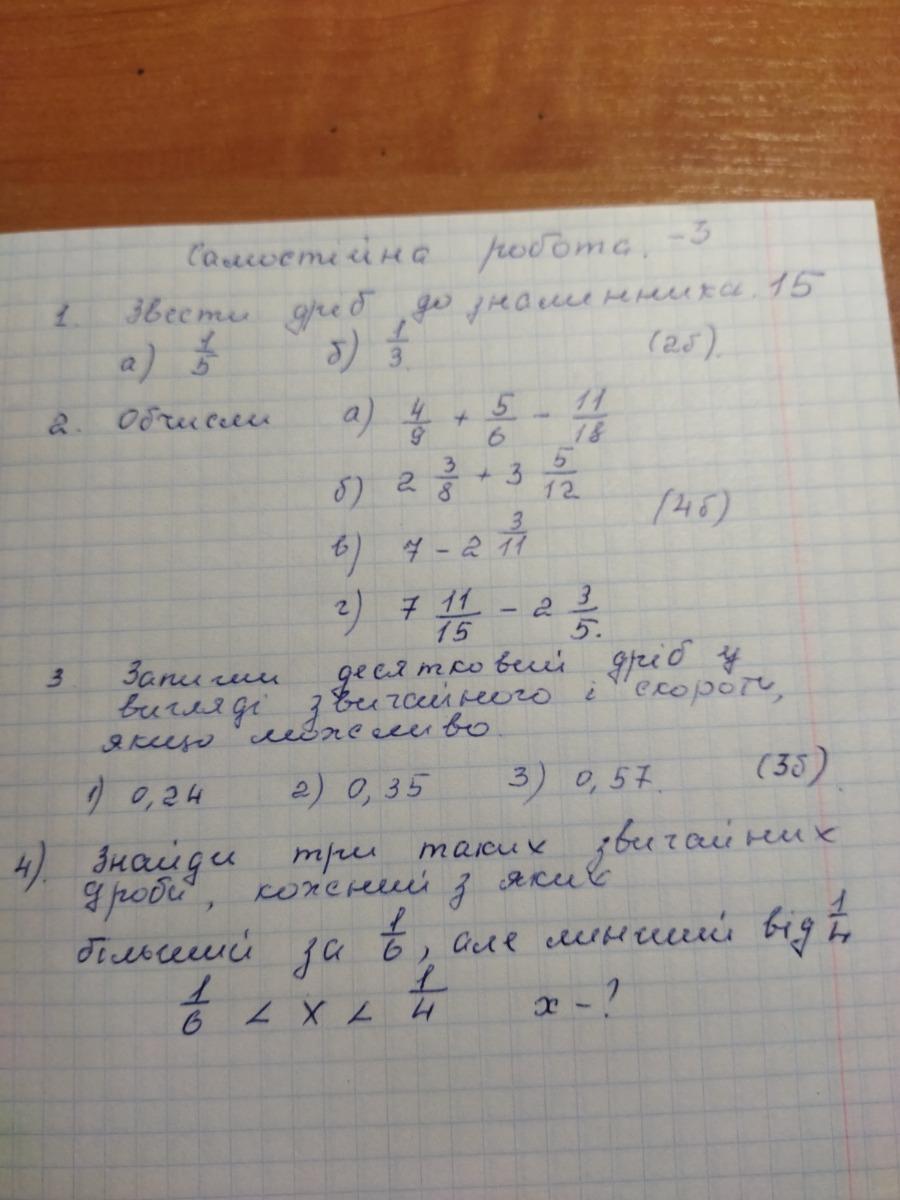 Самостійна робота. -3
1. Звести дріб до знаменника. 15
а) 1/5 б) 1/3. (2б).
2. Обчисли а) 4/9 + 5/6 - 11/18
б) 2 3/8 + 3 5/12
(4б)
в) 7 - 2 3/11
г) 7 11/15 - 2 3/5.
3 Запиши десятковий дріб у
вигляді звичайного і скороти,
якщо можливо.
1) 0,24 2) 0,35 3) 0,57. (3б).
4). Знайди три таких звичайних
дроби, кожний з яких
більший за 1/6, але менший від 1/4
1/6 < х < 1/4 х - ?